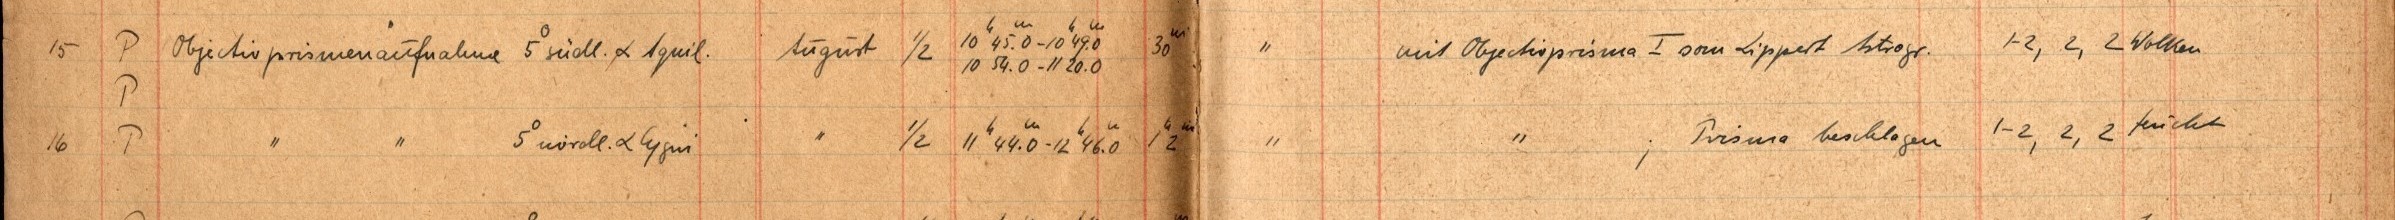 15 P Objectivprismenaufnahme 5° südl. α Aquil. August 1/2 10h 45.0m - 10h 49.0m 30m " mit Objectivprisma I vom Lippert Astrogr. 1-2, 2, 2 Wolken
10 54.0 - 11 20.0
P
16 P " " 5° nördl. α Cygni " 1/2 11h 44.0m - 12h 46.0m 1h 2m " " ; Prisma beschlagen 1-2, 2, 2 feucht